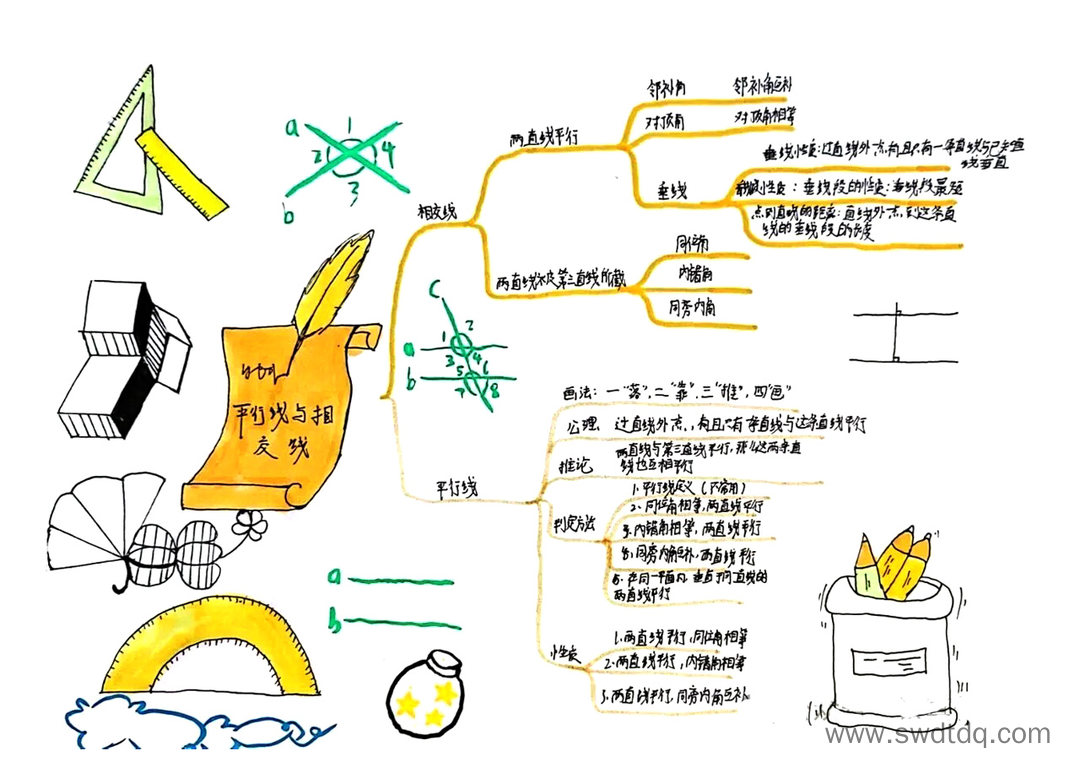 平行线与相
交线
相交线
两直线平行
邻补角
邻补角互补
对顶角
对顶角相等
垂线
垂线性质:过直线外一点有且只有一条直线与已知直
线垂直
垂线段的性质:垂线段最短
点到直线的距离:直线外一点,到这条直
线的垂线段的长度
两直线被第三直线所截
同位角
内错角
同旁内角
平行线
画法:一“落”,二“靠”,三“推”,四“画”
公理
过直线外一点,有且只有一条直线与这条直线平行
推论
两直线与第三直线平行,那么这两条直
线也互相平行
判定方法
1.平行线定义(不常用)
2.同位角相等,两直线平行
3.内错角相等,两直线平行
4.同旁内角互补,两直线平行
5.在同一平面内,垂直于同一直线的
两直线平行
性质
1.两直线平行,同位角相等
2.两直线平行,内错角相等
3.两直线平行,同旁内角互补
a
1
2
4
3
b
c
1
2
a
3
4
b
5
6
7
8
a
b
www.swdtdq.com